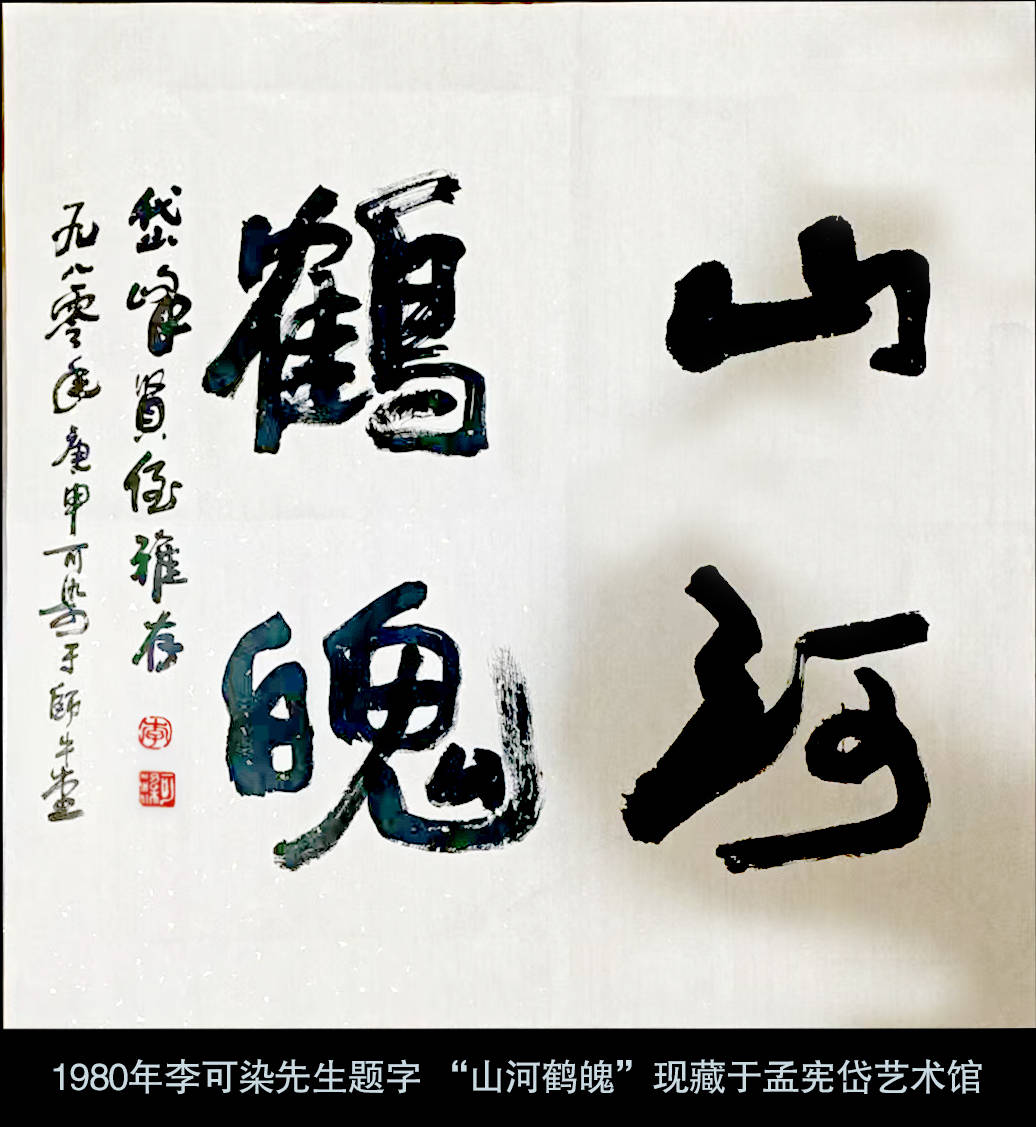 山河
鶴魄
岱峰賢侄雅存
一九八零年庚申可染寫于師牛堂
李
可染
1980年李可染先生题字 “山河鹤魄”现藏于孟宪岱艺术馆